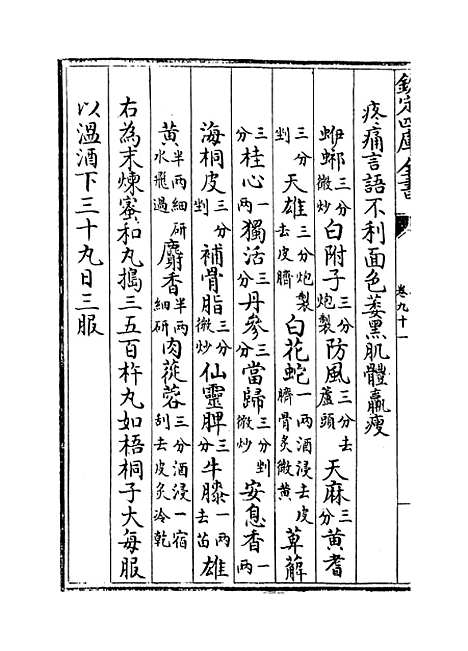 欽定四庫全書
卷九十一
疼痛言語不利面色萎黑肌體羸瘦
三分微炒白附子三分炮製防風三分去蘆頭天麻三分黃耆
三分剉天雄三分炮製去皮臍白花蛇一兩酒浸去皮臍骨炙微黃萆薢
三分桂心一兩獨活三分丹參三分當歸三分剉微炒安息香一兩
海桐皮三分剉補骨脂三分微炒仙靈脾三分牛膝一兩去苗雄
黃半兩細研水飛過麝香半兩細研肉蓯蓉三分酒浸一宿刮去皮炙冷乾
右為末煉蜜和丸搗三五百杵丸如梧桐子大每服
以溫酒下三十丸日三服